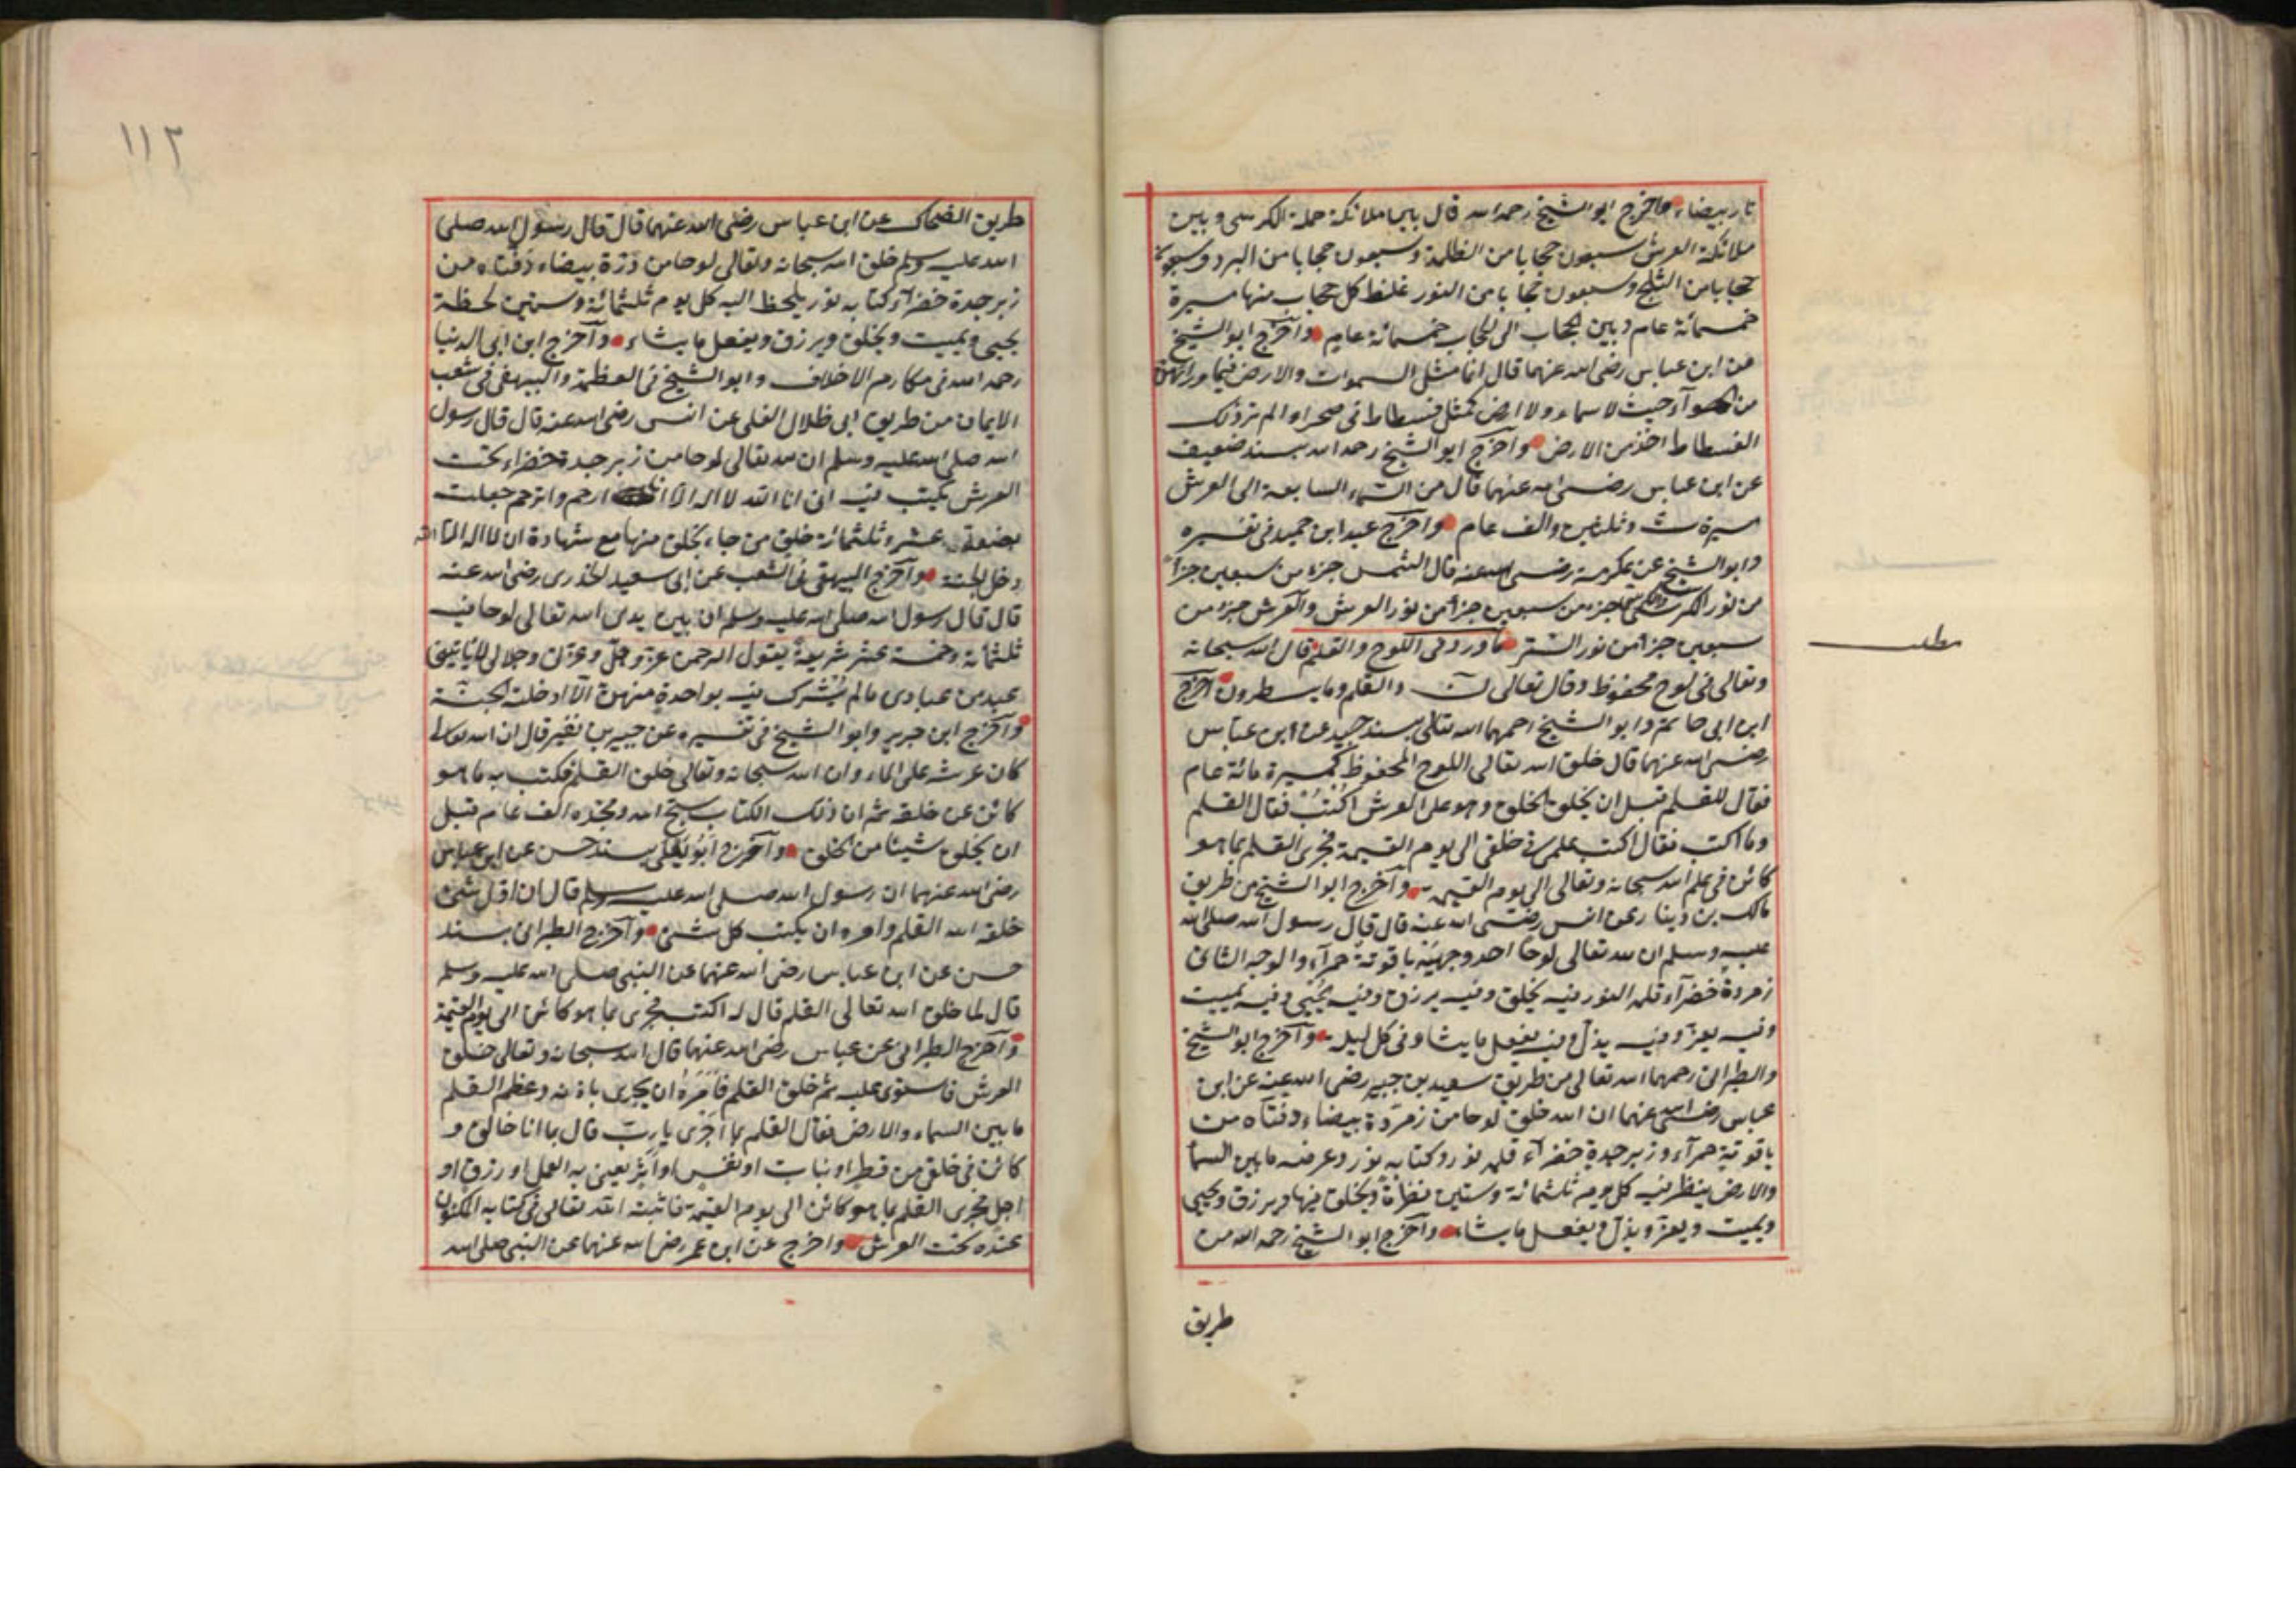 نار بيضاء واخرج ابو الشيخ رحمه الله قال بين ملائكة حملة الكرسى وبين
ملائكة العرش سبعون حجابا من الظلمة وسبعون حجابا من البرد وسبعون
حجابا من الثلج وسبعون حجابا من النور غلظ كل حجاب منها مسيرة
خمسمائة عام وبين الحجاب الى الحجاب خمسمائة عام واخرج ابو الشيخ
عن ابن عباس رضى الله عنهما قال انما مثل السموات والارض فيما ورائهن
من الهوآء حيث لا سماء ولا ارض كمثل فسطاط فى صحراء الم تر ذلك
الفسطاط اخذ من الارض وآخرج ابو الشيخ رحمه الله بسند ضعيف
عن ابن عباس رضى الله عنهما قال من السماء السابعة الى العرش
مسيرة ست وثلثين والف عام واخرج عبد ابن حميد فى تفسيره
وابو الشيخ عن عكرمة رضى الله عنه قال الشمس جزء من سبعين جزأ
من نور الكرسى والكرسى جزء من سبعين جزأ من نور العرش والعرش جزء من
سبعين جزأ من نور الستر ما ورد فى اللوح والقلم قال الله سبحانه
وتعالى فى لوح محفوظ وقال تعالى نۤ والقلم وما يسطرون آخرج
ابن ابى حاتم وابو الشيخ رحمهما الله تعالى بسند جيد عن ابن عباس
رضى الله عنهما قال خلق الله تعالى اللوح المحفوظ كمسيرة مائة عام
فقال للقلم قبل ان يخلق الخلق وهو على العرش اكتب فقال القلم
وما اكتب فقال اكتب علمى فى خلقى الى يوم القيمة فجرى القلم بما هو
كائن فى علم الله سبحانه وتعالى الى يوم القيمة وآخرج ابو الشيخ من طريق
مالك بن دينار عن انس رضى الله عنه قال قال رسول الله صلى الله
عليه وسلم ان لله تعالى لوحا احد وجهيه ياقوتة حمرآء والوجه الثانى
زمردة خضرآء قلمه النور فيه يخلق وفيه يرزق وفيه يحيى وفيه يميت
وفيه يعز وفيه يذل وفيه يفعل ما يشا وفى كل ليلة وآخرج ابو الشيخ
والطبرانى رحمهما الله تعالى من طريق سعيد بن جبير رضى الله عنه عن ابن
عباس رضى الله عنهما ان الله خلق لوحا من زمردة بيضاء دفتاه من
ياقوتة حمرآء وزبرجدة خضرآء قلمه نور وكتابه نور وعرضه ما بين السما
والارض ينظر فيه كل يوم ثلثمائة وستين نظرة ويخلق فيها ويرزق ويحيى
ويميت ويعز ويذل ويفعل ما يشاء وآخرج ابو الشيخ رحمه الله من
طريق
مطلب
١١٢
طريق الضحاك عن ابن عباس رضى الله عنهما قال قال رسول الله صلى
الله عليه وسلم خلق الله سبحانه وتعالى لوحا من درة بيضاء دفتاه من
زبرجدة خضرآء كتابه نور يلحظ اليه كل يوم ثلثمائة وستين لحظة
يحيى ويميت ويخلق ويرزق ويفعل ما يشاء وآخرج ابن ابى الدنيا
رحمه الله فى مكارم الاخلاق وابو الشيخ فى العظمة والبيهقى فى شعب
الايمان من طريق ابى ظلال القلى عن انس رضى الله عنه قال قال رسول
الله صلى الله عليه وسلم ان لله تعالى لوحا من زبرجدة خضراء تحت
العرش يكتب فيه انى انا الله لا اله الا انا ارحم واترحم جعلت
بضعة عشر وثلثمائة خلق من جاء بخلق منها مع شهادة ان لا اله الا الله
دخل الجنة وآخرج البيهقى فى الشعب عن ابى سعيد الخدرى رضى الله عنه
قال قال رسول الله صلى الله عليه وسلم ان بين يدى الله تعالى لوحا فيه
ثلثمائة وخمسة عشر شريعة يقول الرحمن عز وجل وعزتى وجلالى لا يأتينى
عبد من عبادى ما لم يشرك فيه بواحدة منهن الا ادخلته الجنة
وآخرج ابن جرير وابو الشيخ فى تفسيره عن جبير بن نفير قال ان الله تعالى
كان عرشه على الماء وان الله سبحانه وتعالى خلق القلم فكتب به ما هو
كائن عن خلقه ثم ان ذلك الكتاب سبح الله ومجده الف عام قبل
ان يخلق شيئا من الخلق وآخرج ابو يعلى بسند حسن عن ابن عباس
رضى الله عنهما ان رسول الله صلى الله عليه وسلم قال ان اول شئ
خلقه الله القلم وامره ان يكتب كل شئ وآخرج الطبرانى بسند
حسن عن ابن عباس رضى الله عنهما عن النبى صلى الله عليه وسلم
قال لما خلق الله تعالى القلم قال له اكتب فجرى بما هو كائن الى يوم القيمة
وآخرج الطبرانى عن عباس رضى الله عنهما قال الله سبحانه وتعالى خلق
العرش فاستوى عليه ثم خلق القلم فامره ان يجرى باذنه وعظم القلم
ما بين السماء والارض فقال القلم بما اجرى يا رب قال بما انا خالق و
كائن فى خلقى من قطر او نبات او نفس او اثر يعنى به العمل او رزق او
اجل فجرى القلم بما هو كائن الى يوم القيمة فاثبته الله تعالى فى كتابه المكنون
عنده تحت العرش واخرج عن ابن عمر رضى الله عنهما عن النبى صلى الله